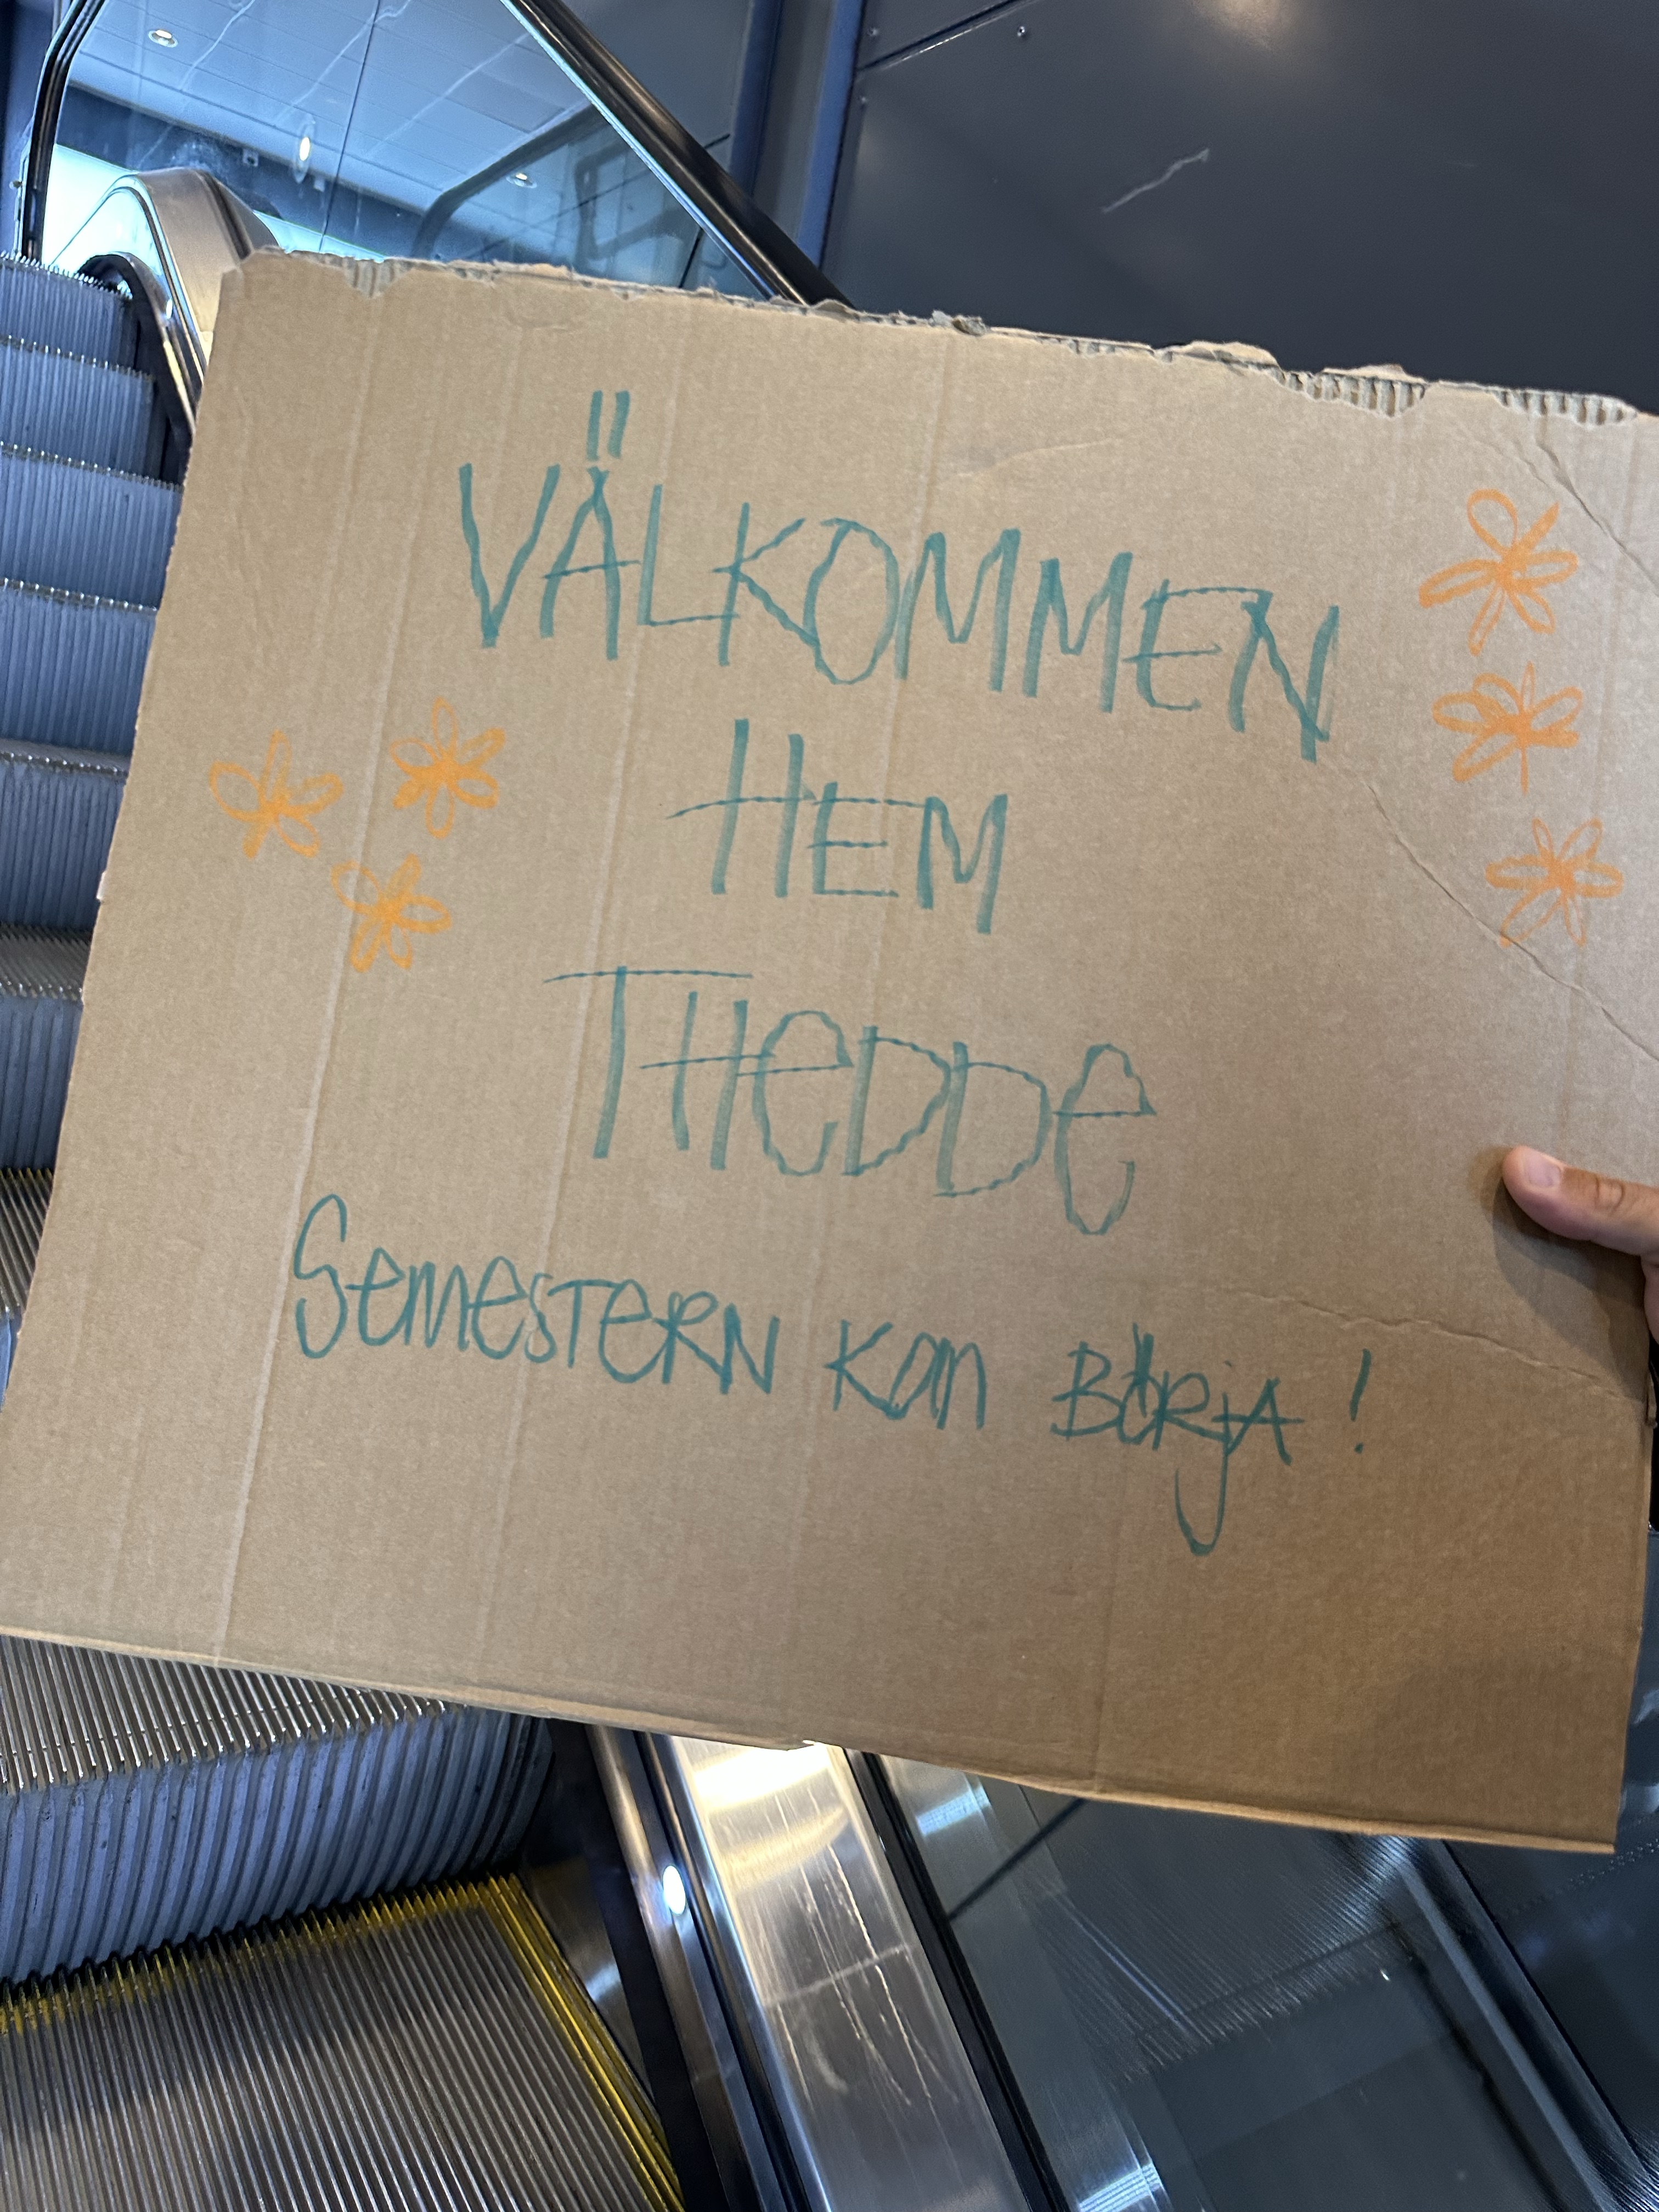 VÄLKOMMEN
HEM
THEDDE
SEMESTERN KAN BÖRJA!